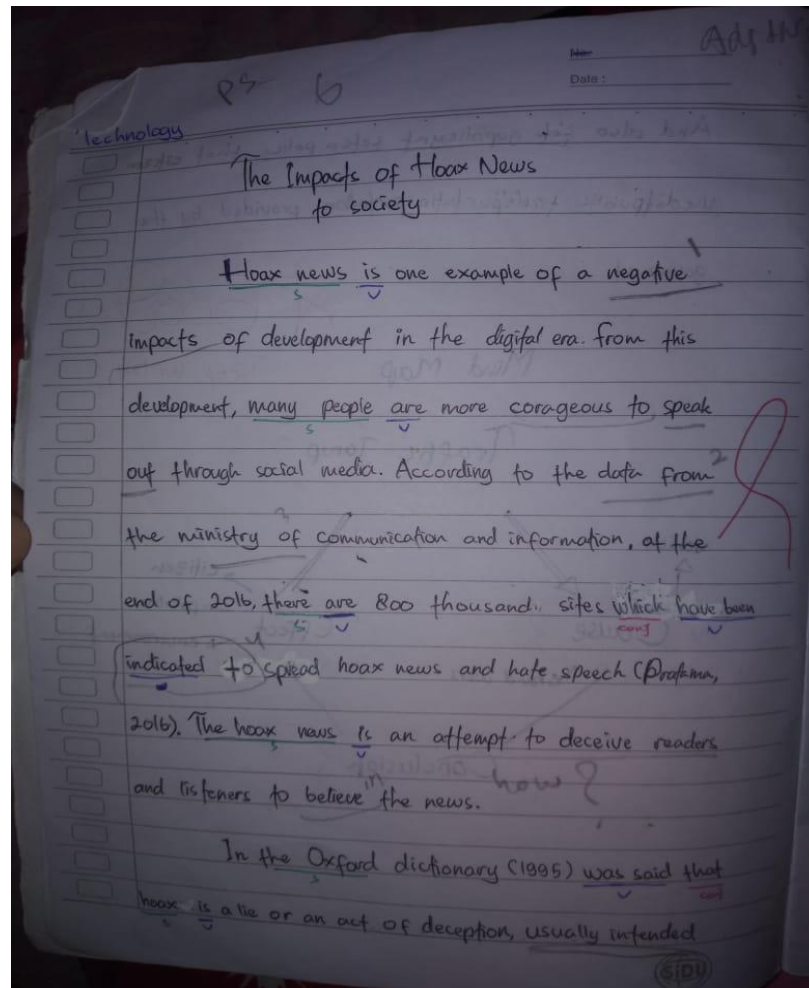 No.
Date :
PS 6
Technology
The Impacts of Hoax News
to society
Hoax news is one example of a negative 1
s v
impacts of development in the digital era. from this
development, many people are more corageous to speak
s v
out through social media. According to the data from 2
the ministry of communication and information, at the
3
end of 2016, there are 800 thousand sites which have been
s v conj v
indicated to spread hoax news and hate speech (
4
2016). The hoax news is an attempt to deceive readers
s v
and listeners to believe in the news.
In the Oxford dictionary (1995) was said that
s v conj
hoax is a lie or an act of deception, usually intended
s v
SIDU